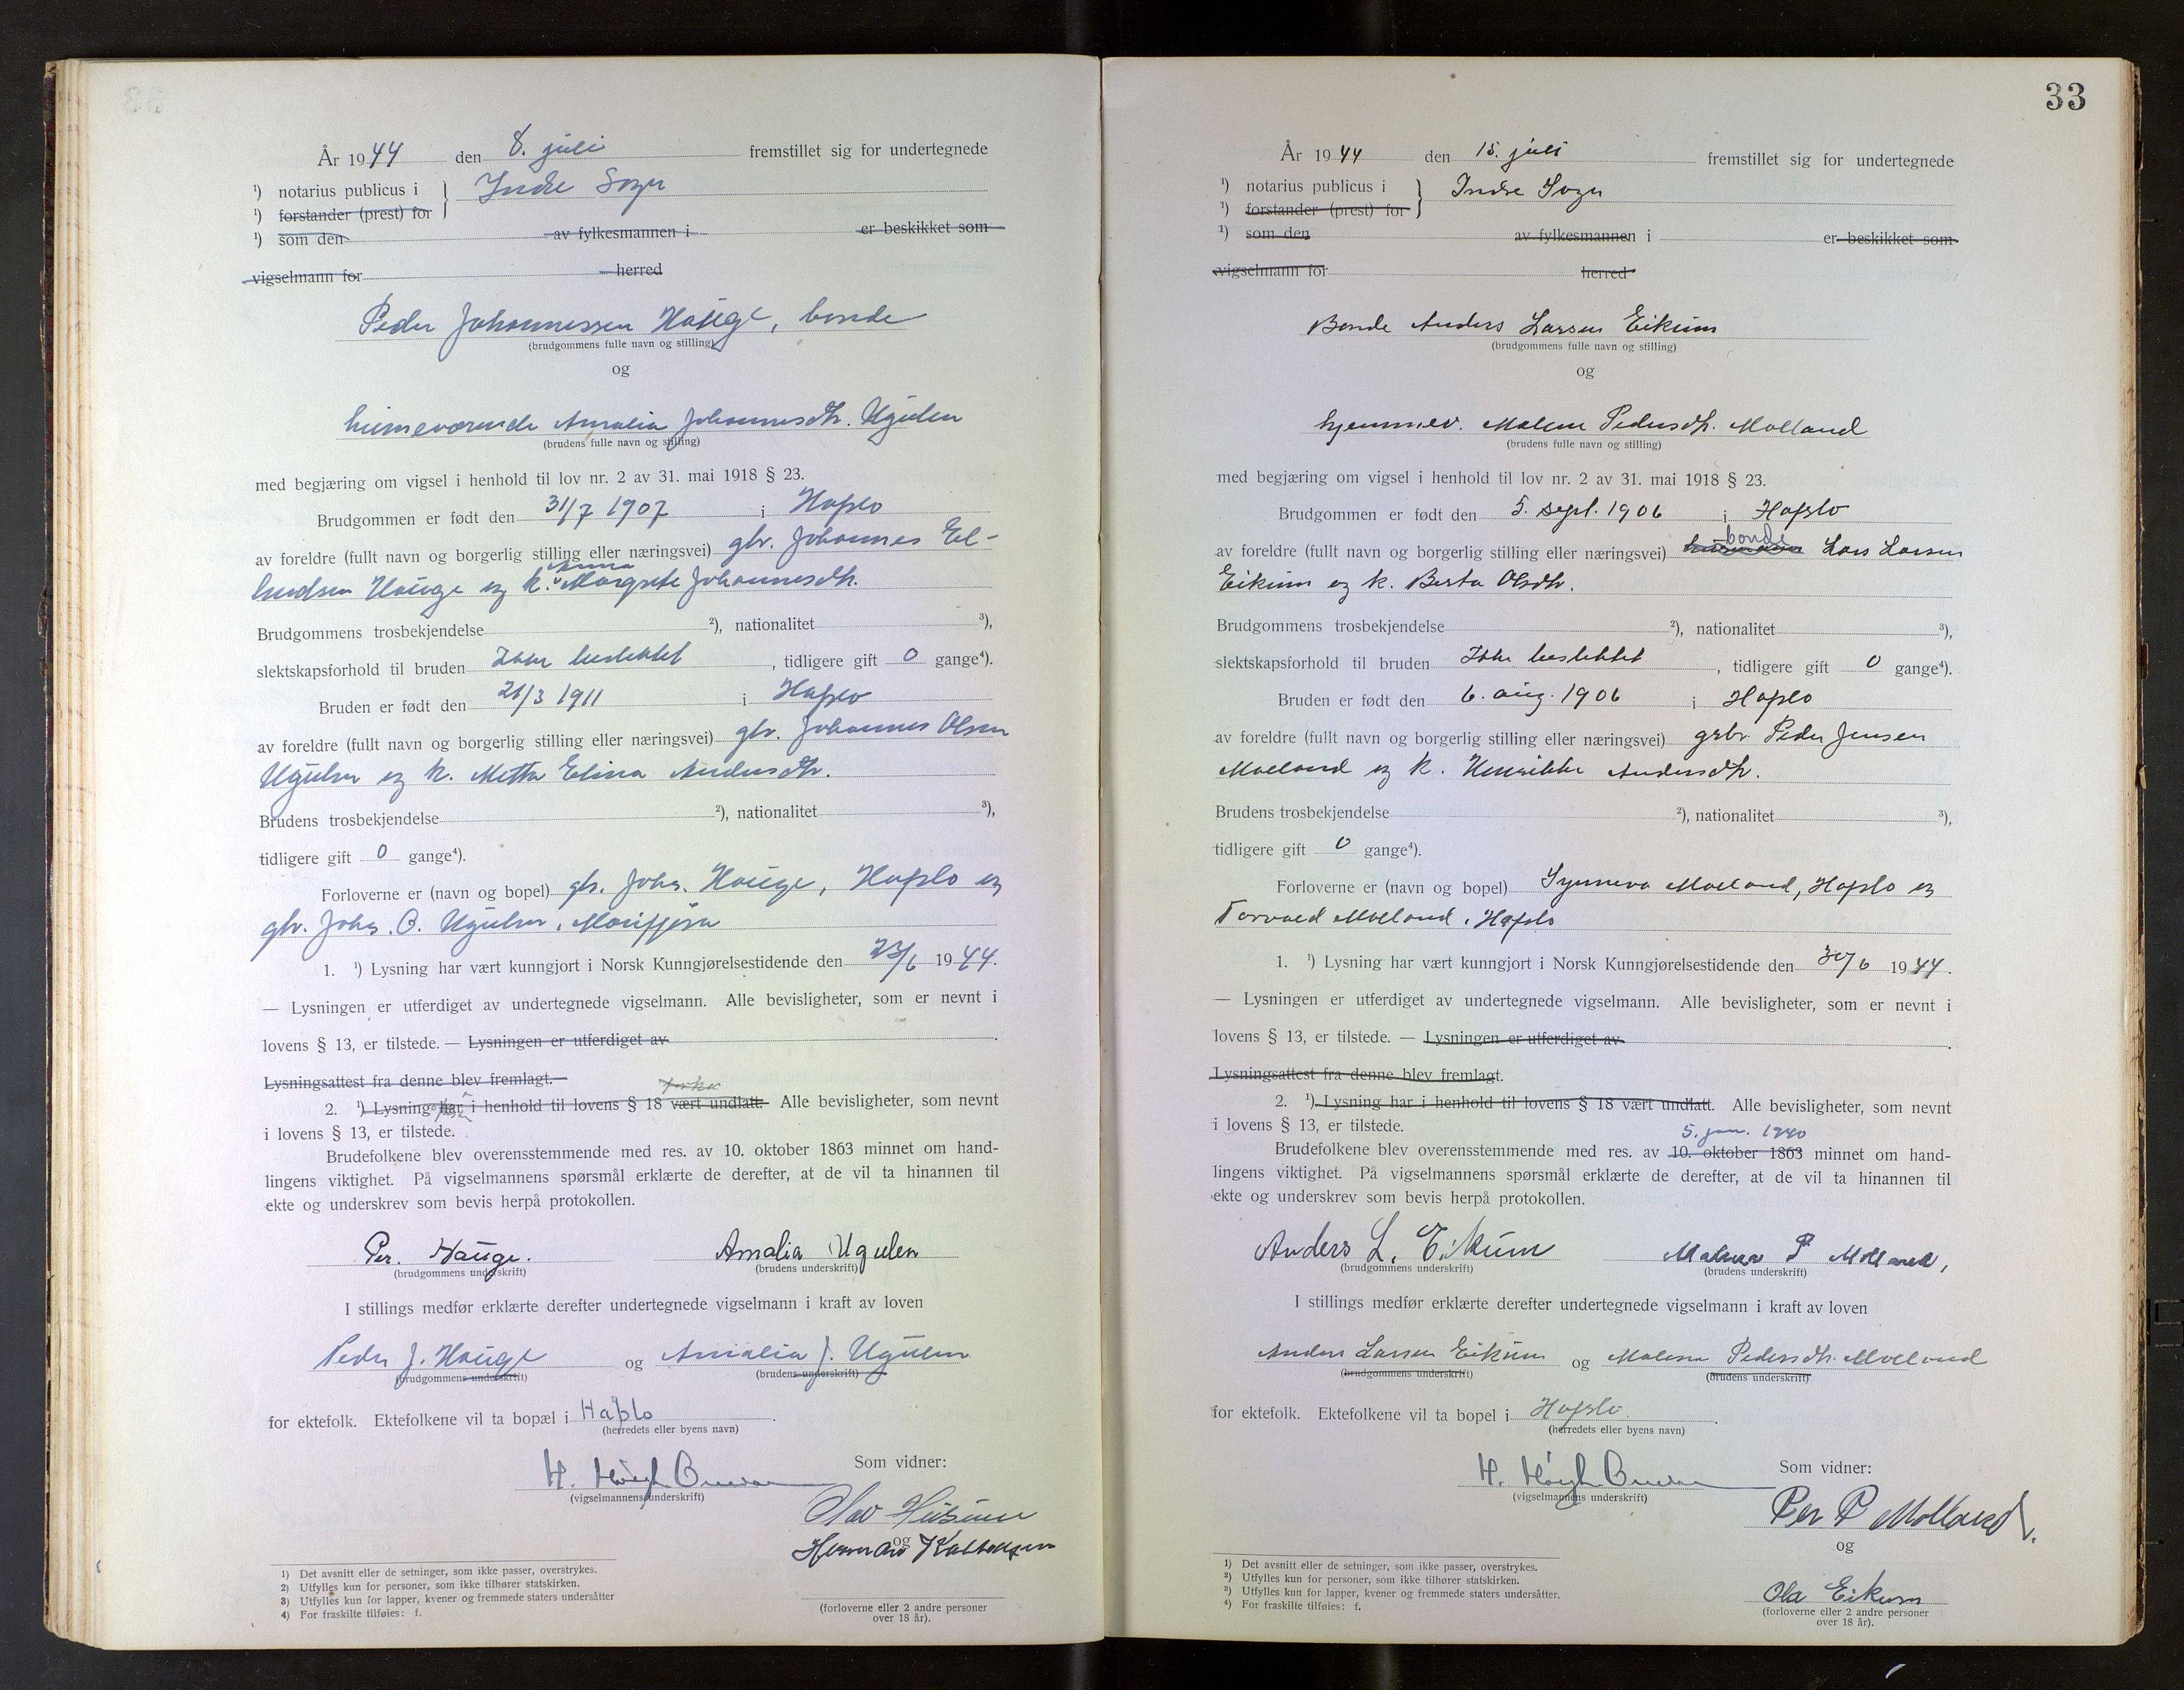 År 1944 den 8. juli fremstillet sig for undertegnede
¹) notarius publicus i } Indre Sogn
¹) forstander (prest) for
¹) som den av fylkesmannen i er beskikket som
vigselmann for herred
Peder Johannessen Hauge, bonde
(brudgommens fulle navn og stilling)
og
heimeværende Amalia Johannesdtr. Ugulen
(brudens fulle navn og stilling)
med begjæring om vigsel i henhold til lov nr. 2 av 31. mai 1918 § 23.
Brudgommen er født den 31/7 1907 i Hafslo
av foreldre (fullt navn og borgerlig stilling eller næringsvei) gbr. Johannes El-
lendsen Hauge og k. Anna Margrete Johannesdtr.
Brudgommens trosbekjendelse ²), nationalitet ³),
slektskapsforhold til bruden Ikke beslektet, tidligere gift 0 gange⁴).
Bruden er født den 3 1911 i Hafslo
av foreldre (fullt navn og borgerlig stilling eller næringsvei) gbr. Johannes Olsen
Ugulen og k. Metta Elina Andersdtr.
Brudens trosbekjendelse ²), nationalitet ³),
tidligere gift 0 gange⁴).
Forloverne er (navn og bopel) gbr. Johs. Hauge, Hafslo og
gbr. Johs. O. Ugulen, Marifjøra
1. ¹) Lysning har vært kunngjort i Norsk Kunngjørelsestidende den 23/6 1944.
— Lysningen er utferdiget av undertegnede vigselmann. Alle bevisligheter, som er nevnt i
lovens § 13, er tilstede. — Lysningen er utferdiget av .
Lysningsattest fra denne blev fremlagt.
2. ¹) Lysning har i henhold til lovens § 18 vært undlatt. Alle bevisligheter, som nevnt
i lovens § 13, er tilstede.
Brudefolkene blev overensstemmende med res. av 10. oktober 1863 minnet om hand-
lingens viktighet. På vigselmannens spørsmål erklærte de derefter, at de vil ta hinannen til
ekte og underskrev som bevis herpå protokollen.
Per. Hauge. Amalia Ugulen
(brudgommens underskrift) (brudens underskrift)
I stillings medfør erklærte derefter undertegnede vigselmann i kraft av loven
Peder J. Hauge og Amalia J. Ugulen
(brudgommens underskrift) (brudens underskrift)
for ektefolk. Ektefolkene vil ta bopæl i Hafslo .
(herredets eller byens navn)
H. Høigh Som vidner:
(vigselmannens underskrift)
Olav Husum
og
Herman
(forloverne eller 2 andre personer
over 18 år).
1) Det avsnitt eller de setninger, som ikke passer, overstrykes.
2) Utfylles kun for personer, som ikke tilhører statskirken.
3) Utfylles kun for lapper, kvener og fremmede staters undersåtter
4) For fraskilte tilføies: f.
33
År 1944 den 15. juli fremstillet sig for undertegnede
¹) notarius publicus i } Indre Sogn
¹) forstander (prest) for
¹) som den av fylkesmannen i er beskikket som
vigselmann for herred
Bonde Anders Larsen Eikum
(brudgommens fulle navn og stilling)
og
hjemmev. Malene Pedersdtr. Molland
(brudens fulle navn og stilling)
med begjæring om vigsel i henhold til lov nr. 2 av 31. mai 1918 § 23.
Brudgommen er født den 5. sept. 1906 i Hafslo
bonde
av foreldre (fullt navn og borgerlig stilling eller næringsvei) husmann Lars Larsen
Eikum og k. Berta Olsdtr.
Brudgommens trosbekjendelse ²), nationalitet ³),
slektskapsforhold til bruden Ikke beslektet, tidligere gift 0 gange⁴).
Bruden er født den 6. aug. 1906 i Hafslo
av foreldre (fullt navn og borgerlig stilling eller næringsvei) grbr. Peder Jensen
Molland og k. Henrikke Andersdtr.
Brudens trosbekjendelse ²), nationalitet ³),
tidligere gift 0 gange⁴).
Forloverne er (navn og bopel) Synneva Molland, Hafslo og
Torvald Molland, Hafslo
1. ¹) Lysning har vært kunngjort i Norsk Kunngjørelsestidende den 30/6 1944.
— Lysningen er utferdiget av undertegnede vigselmann. Alle bevisligheter, som er nevnt i
lovens § 13, er tilstede. — Lysningen er utferdiget av .
Lysningsattest fra denne blev fremlagt.
2. ¹) Lysning har i henhold til lovens § 18 vært undlatt. Alle bevisligheter, som nevnt
i lovens § 13, er tilstede.
5. jan. 1940
Brudefolkene blev overensstemmende med res. av 10. oktober 1863 minnet om hand-
lingens viktighet. På vigselmannens spørsmål erklærte de derefter, at de vil ta hinannen til
ekte og underskrev som bevis herpå protokollen.
Anders L. Eikum Malene P Molland,
(brudgommens underskrift) (brudens underskrift)
I stillings medfør erklærte derefter undertegnede vigselmann i kraft av loven
Anders Larsen Eikum og Malene Pedersdtr. Molland
(brudgommens underskrift) (brudens underskrift)
for ektefolk. Ektefolkene vil ta bopel i Hafslo.
(herredets eller byens navn)
H. Høigh Som vidner:
(vigselmannens underskrift)
Per P Molland.
og
Ola Eikum
(forloverne eller 2 andre personer
over 18 år).
1) Det avsnitt eller de setninger, som ikke passer, overstrykes.
2) Utfylles kun for personer, som ikke tilhører statskirken.
3) Utfylles kun for lapper, kvener og fremmede staters undersåtter.
4) For fraskilte tilføies: f.